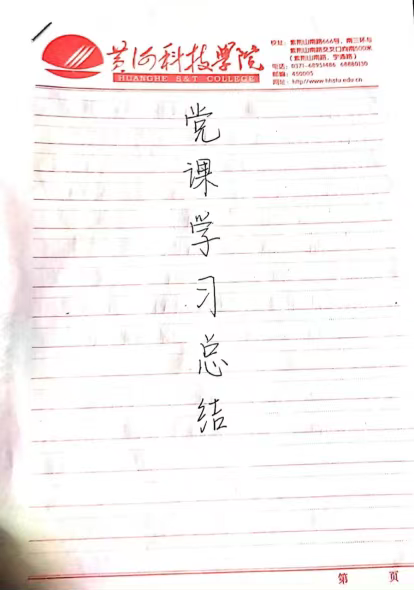 黄河科技学院
HUANGHE S&T COLLEGE
地址：紫荆山南路666号，南三环与
紫荆山南路交叉口向南500米
（紫荆山南路、宇通路）
电话：0371-68951486 68880130
邮编：450005
网址：http://www.hhstu.edu.cn
党课学习总结
第 页